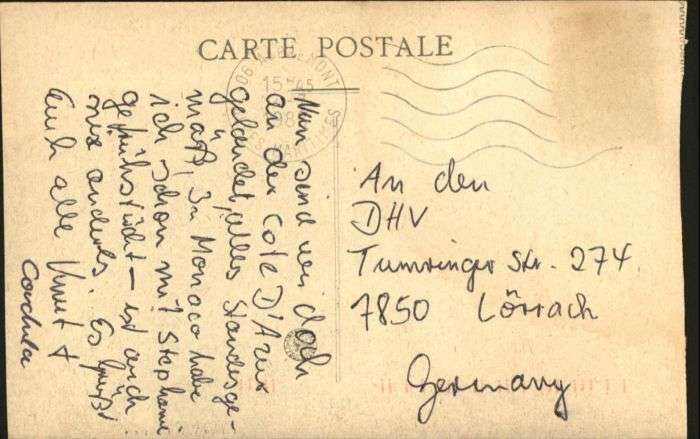 CARTE POSTALE
15 H 45
Nun sind wir doch
an der Cote D'Azur
gelandet, alles Standesge-
mäß, In Monaco habe
ich schon mit Stephanie
gefrühstückt – ist auch
nix anderes. Es grüßt
Euch alle Knut +
Cordula
An den
DHV
Tumringer Str. 274
7850 Lörrach
Germany